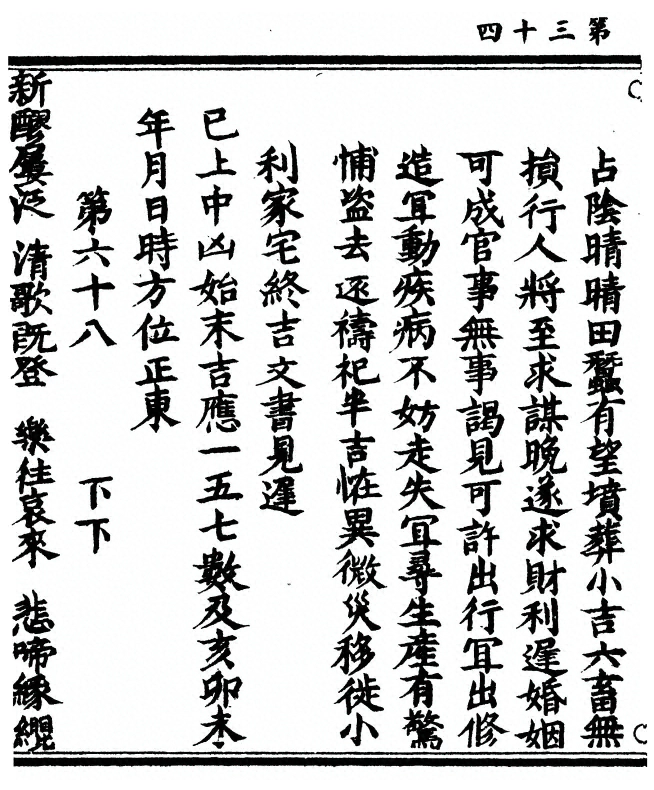 第三十四
占陰晴晴田蠶有望墳葬小吉六畜無
損行人將至求謀晚遂求財利遲婚姻
可成官事無事謁見可許出行冝出修
造冝動疾病不妨走失冝尋生產有驚
捕盗去逐禱祀半吉恠異微災移徙小
利家宅終吉文書見遲
已上中凶始末吉應一五七數及亥卯未
年月日時方位正東
第六十八 下下
新醪屢泛 清歌既登 樂往哀來 悲啼緣纓